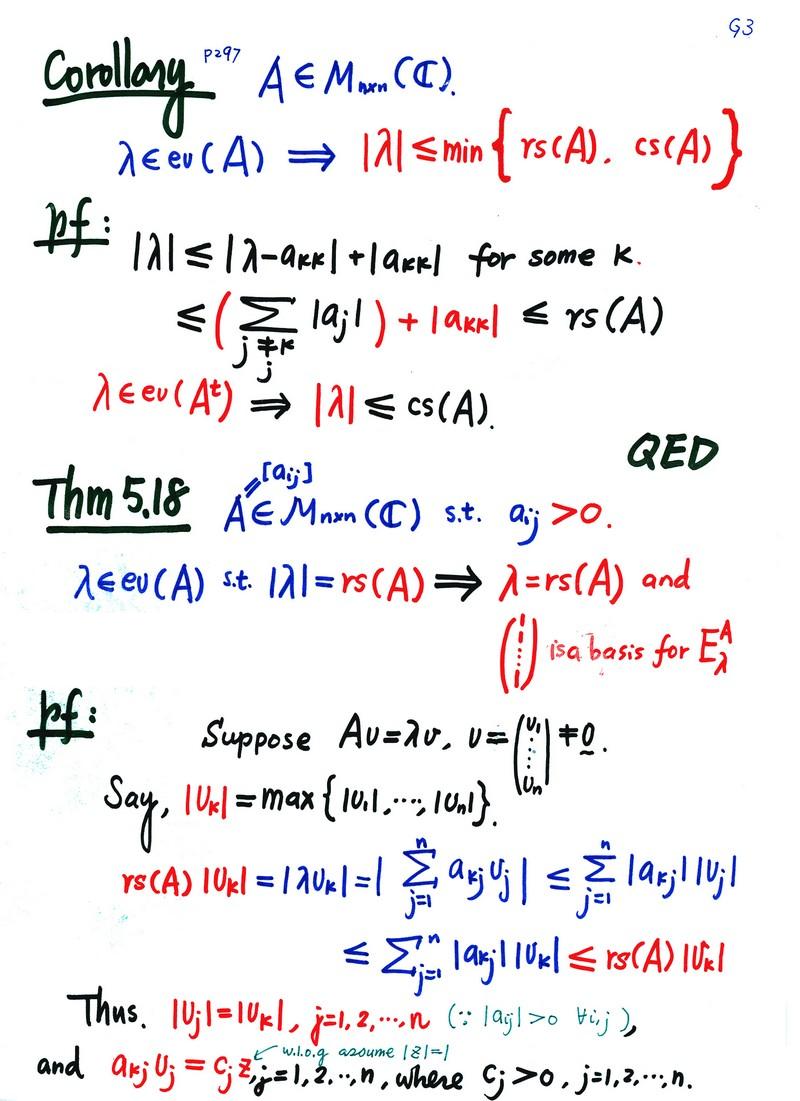 G3
Corollary p297 A ∈ Mn×n(ℂ).
λ ∈ ev(A) ⇒ |λ| ≤ min { rs(A), cs(A) }
pf:
|λ| ≤ |λ-aKK| + |aKK| for some K.
≤ ( ∑ j≠K j |aj| ) + |aKK| ≤ rs(A)
λ ∈ ev(Aᵗ) ⇒ |λ| ≤ cs(A).
QED
[aij]
Thm 5.18 A ∈ Mn×n(ℂ) s.t. aij > 0.
λ ∈ ev(A) s.t. |λ| = rs(A) ⇒ λ = rs(A) and
(1 ⋮ 1) is a basis for E_λ^A
pf:
Suppose Av = λv, v = (v1 ⋮ vn) ≠ 0.
Say, |vK| = max { |v1|, ⋯, |vn| }.
rs(A) |vK| = |λvK| = | ∑_{j=1}^n aKj vj | ≤ ∑_{j=1}^n |aKj| |vj|
≤ ∑_{j=1}^n |aKj| |vK| ≤ rs(A) |vK|
Thus. |vj| = |vK|, j=1, 2, ⋯, n (∵ |aij| > 0 ∀i,j ),
w.l.o.g assume |z|=1
and aKj vj = cj z, j=1, 2, ⋯, n, where cj > 0, j=1, 2, ⋯, n.